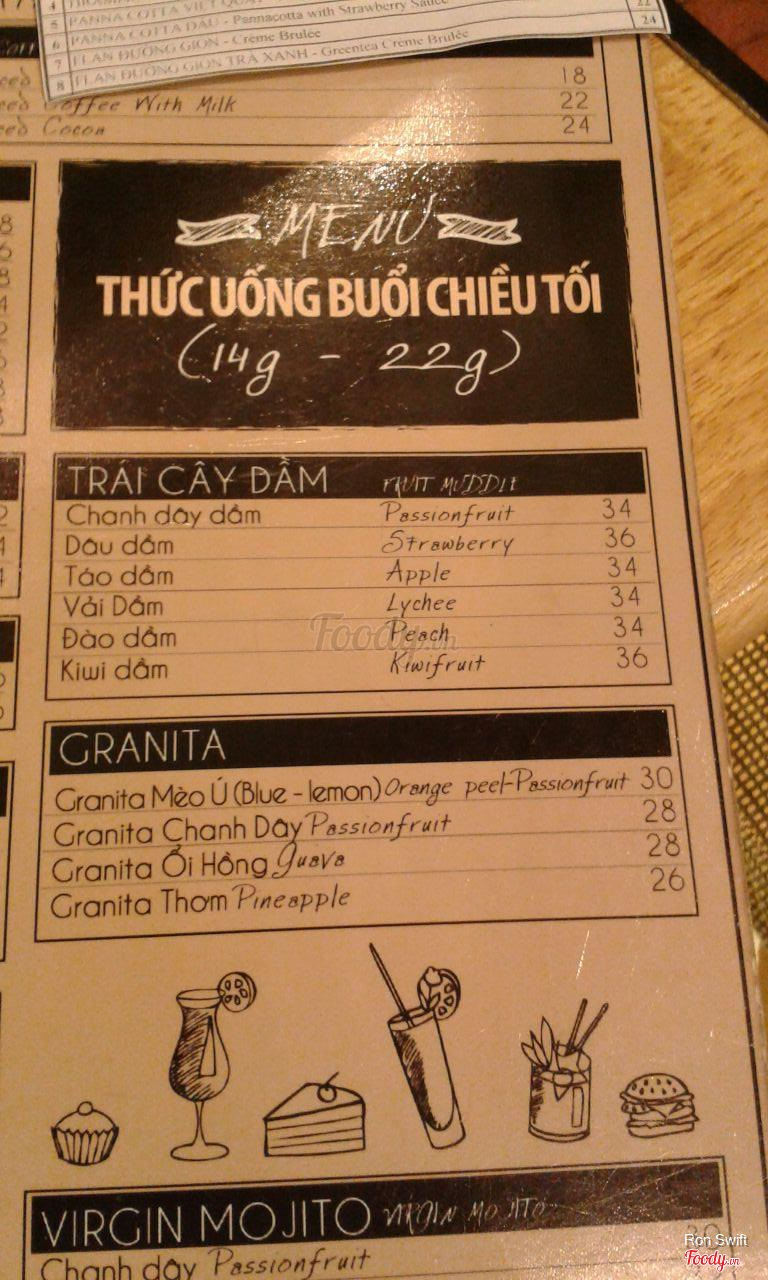 4
5 PANNA COTTA VIỆT QUẤT
6 PANNA COTTA DÂU - Pannacotta with Strawberry Sauce 22
7 FLAN ĐƯỜNG GIÒN - Crème Brulée 24
8 FLAN ĐƯỜNG GIÒN TRÀ XANH - Greentea Crème Brulée
18
Coffee With Milk 22
Cocoa 24
MENU
THỨC UỐNG BUỔI CHIỀU TỐI
(14g - 22g)
TRÁI CÂY DẦM FRUIT MUDDLE
Chanh dây dầm Passionfruit 34
Dâu dầm Strawberry 36
Táo dầm Apple 34
Vải Dầm Lychee 34
Đào dầm Peach 34
Kiwi dầm Kiwifruit 36
Foody.vn
GRANITA
Granita Mèo Ú (Blue - lemon) Orange peel-Passionfruit 30
Granita Chanh Dây Passionfruit 28
Granita Ổi Hồng Guava 28
Granita Thơm Pineapple 26
VIRGIN MOJITO VIRGIN MOJITO
Chanh dây Passionfruit 30
Ron Swift
Foody.vn